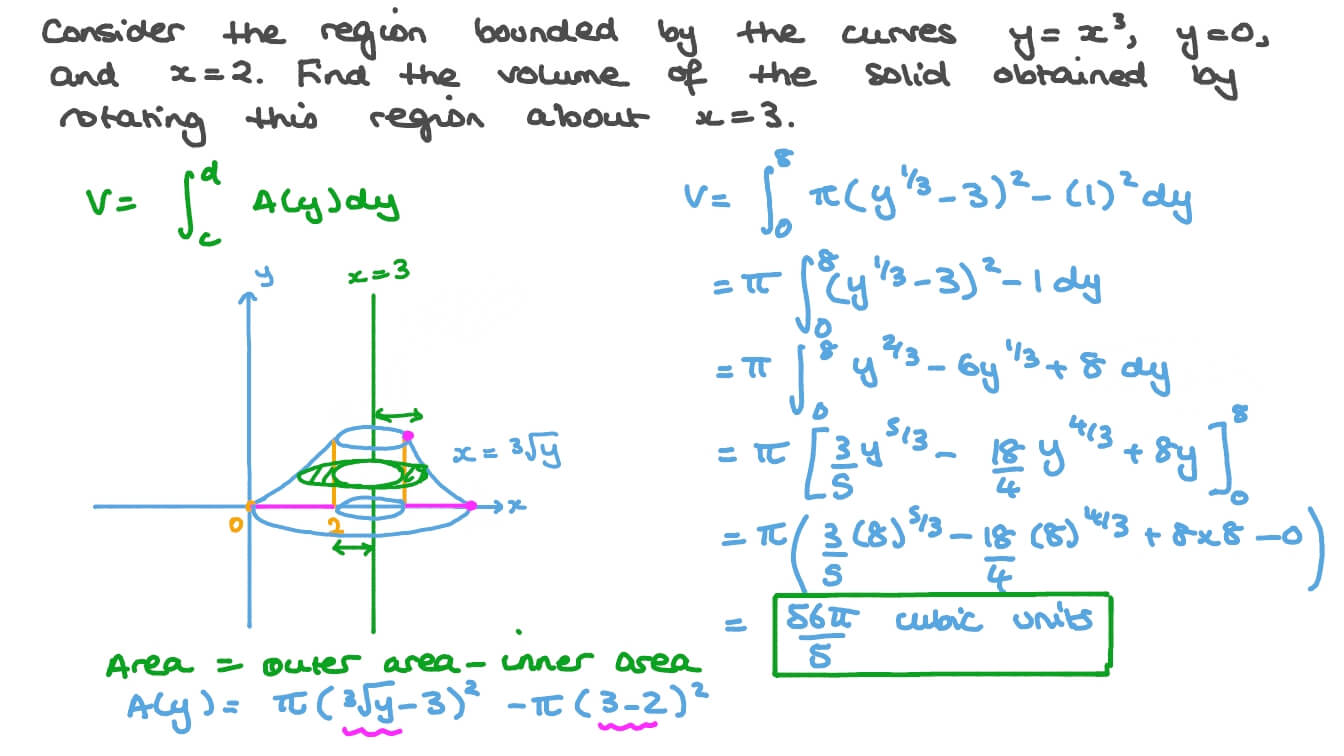 Consider the region bounded by the curves y = x³, y=0,
and x=2. Find the volume of the solid obtained by
rotating this region about x=3.
V = ∫_c^d A(y)dy
y
x=3
x = ³√y
x
0
2
Area = outer area - inner area
A(y) = π(³√y-3)² - π(3-2)²
V = ∫_0^8 π(y^1/3 - 3)² - (1)² dy
= π ∫_0^8 (y^1/3 - 3)² - 1 dy
= π ∫_0^8 y^2/3 - 6y^1/3 + 8 dy
= π [3/5 y^5/3 - 18/4 y^4/3 + 8y]_0^8
= π(3/5 (8)^5/3 - 18/4 (8)^4/3 + 8x8 - 0)
= 56π/5 cubic units